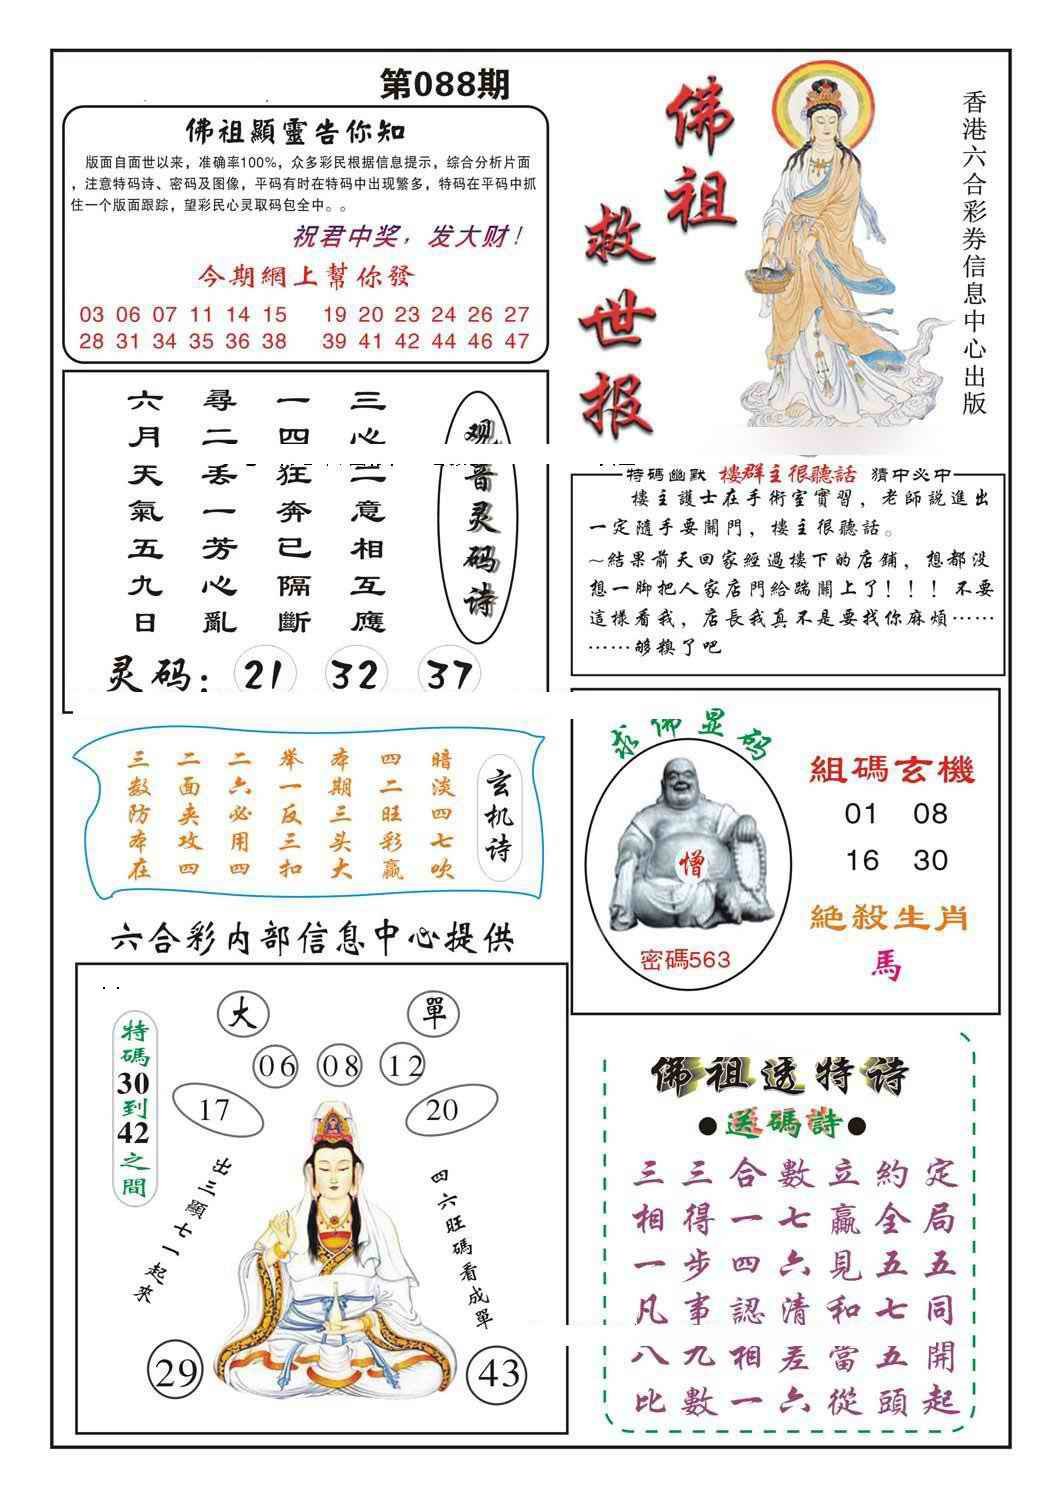 第088期
佛祖顯靈告你知
版面自面世以来，准确率100%，众多彩民根据信息提示，综合分析片面
，注意特码诗、密码及图像，平码有时在特码中出现繁多，特码在平码中抓
住一个版面跟踪，望彩民心灵取码包全中。。
祝君中奖，发大财！
今期網上幫你發
03 06 07 11 14 15 19 20 23 24 26 27
28 31 34 35 36 38 39 41 42 44 46 47
佛祖
救世报
香港六合彩券信息中心出版
观音灵码诗
三心二意相互應
一四狂奔已隔斷
尋二丢一芳心亂
六月天氣五九日
灵码：21 32 37
特碼幽默 樓群主很聽話 猜中必中
樓主護士在手術室實習，老師説進出
一定隨手要關門，樓主很聽話。
~結果前天回家經過樓下的店鋪，想都没
想一脚把人家店門給踹關上了！！！不要
這樣看我，店長我真不是要找你麻煩……
……够糗了吧
玄机诗
暗淡四七吹
四二旺彩贏
本期三头大
举一反三扣
二六必用四
二面夹攻四
三数防本在
求佛显码
憎
密碼563
組碼玄機
01 08
16 30
絶殺生肖
馬
六合彩内部信息中心提供
特碼30到42之間
大 單
06 08 12
17 20
出三顯七一起來
四六旺碼看成單
29 43
佛祖透特诗
●送碼詩●
三三合數立約定
相得一七贏全局
一步四六見五五
凡事認清和七同
八九相差當五開
比數一六從頭起